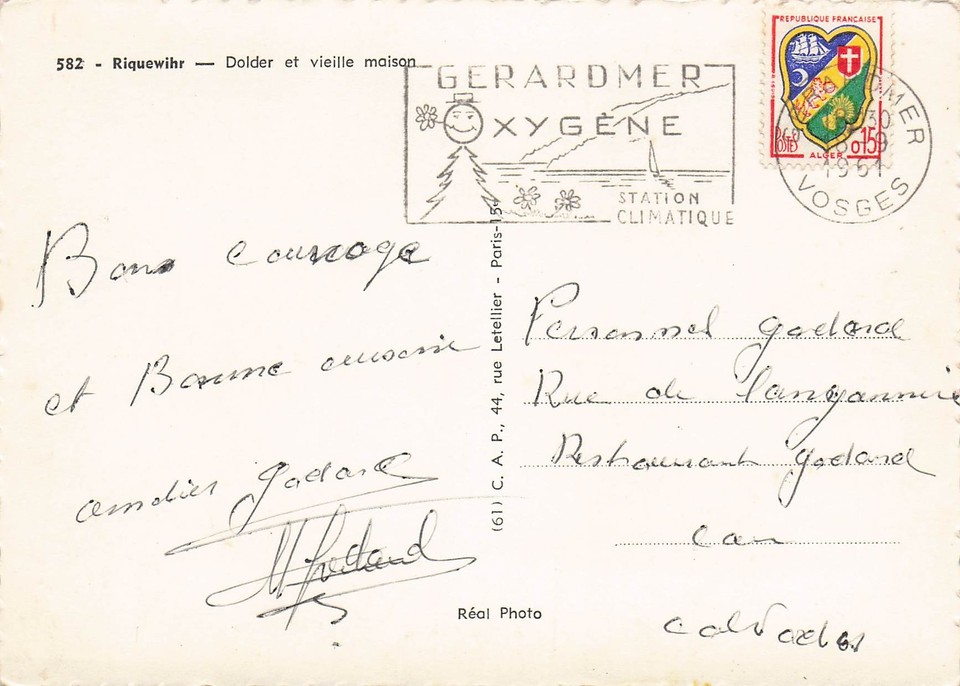 582 - Riquewihr — Dolder et vieille maison
GERARDMER
OXYGÈNE
STATION
CLIMATIQUE
REPUBLIQUE FRANÇAISE
POSTES
0,15
ALGER
GERARDMER
1961
VOSGES
Bons courage
et Bonne cuisine
Godard
M Godard
(61) C. A. P., 44, rue Letellier - Paris-15e
Réal Photo
Personnel Godard
Rue de
Restaurant Godard
Caen
Calvados